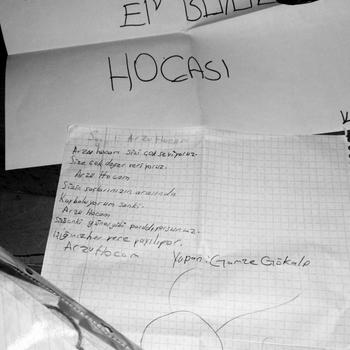 EN BÜYÜK
HOCASI
Arzu Hocam
Arzu hocam sizi çok seviyoruz.
Size çok değer veriyoruz.
Arzu Hocam
Sizin saçlarınızın arasında
Kayboluyorum sanki.
Arzu Hocam
Sanki güneş gibi parıldıyorsunuz.
Işığınız her yere yayılıyor.
Arzu Hocam
Yapan: Gamze Gökalp